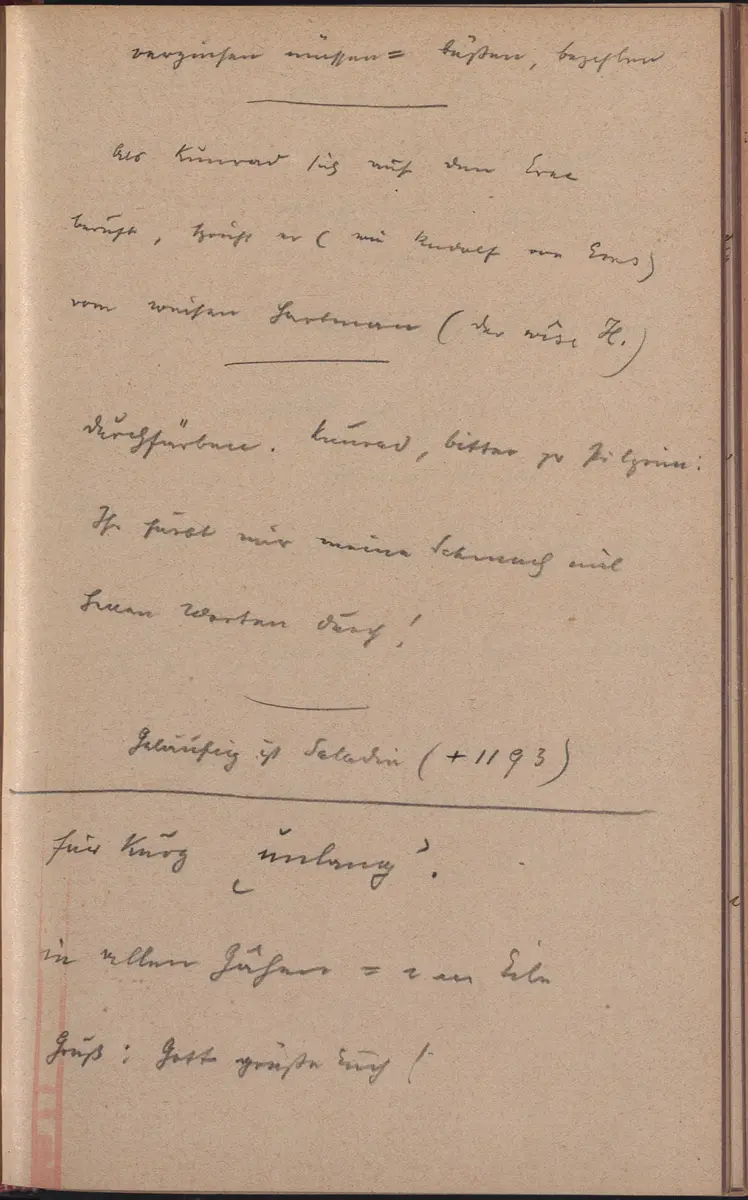 verzinsen müssen = büßen, bezahlen
Als Kunrad sich auf den Erec
beruft, spricht er (wie Rudolf von Ems)
vom weisen Hartman (der wîse H.)
durchfärben. Kunrad, bitter zu Pilgrim:
Ihr färbt mir meine Schmach mit
Worten durch!
Geläufig ist Saladin (+ 1193)
für Kurz „unlang“.
in allen Gähen = in Eile
Gruß: Gott grüße Euch!